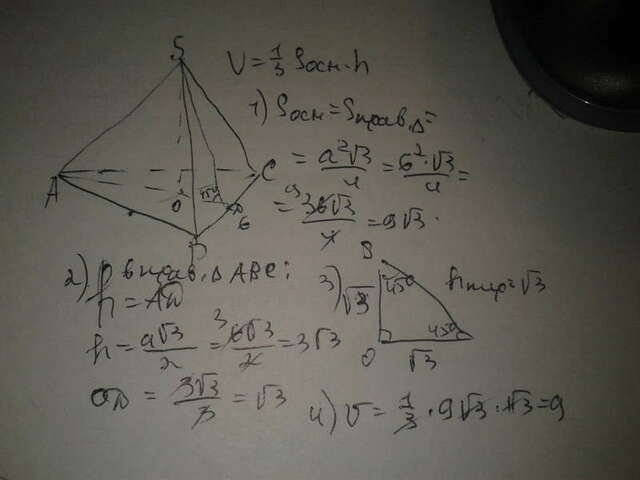 S
A
C
O
45°
6
V = 1/3 Sосн·h
1) Sосн = Sправ.Δ =
= a²√3/4 = 6²·√3/4 =
= 36√3/4 = 9√3.
2) В прав. Δ ABC:
h = AD
h = a√3/2 = 6√3/2 = 3√3
OD = 3√3/3 = √3
3)
√3
45°
45°
O
√3
hпир = √3
4) V = 1/3 · 9√3 · √3 = 9